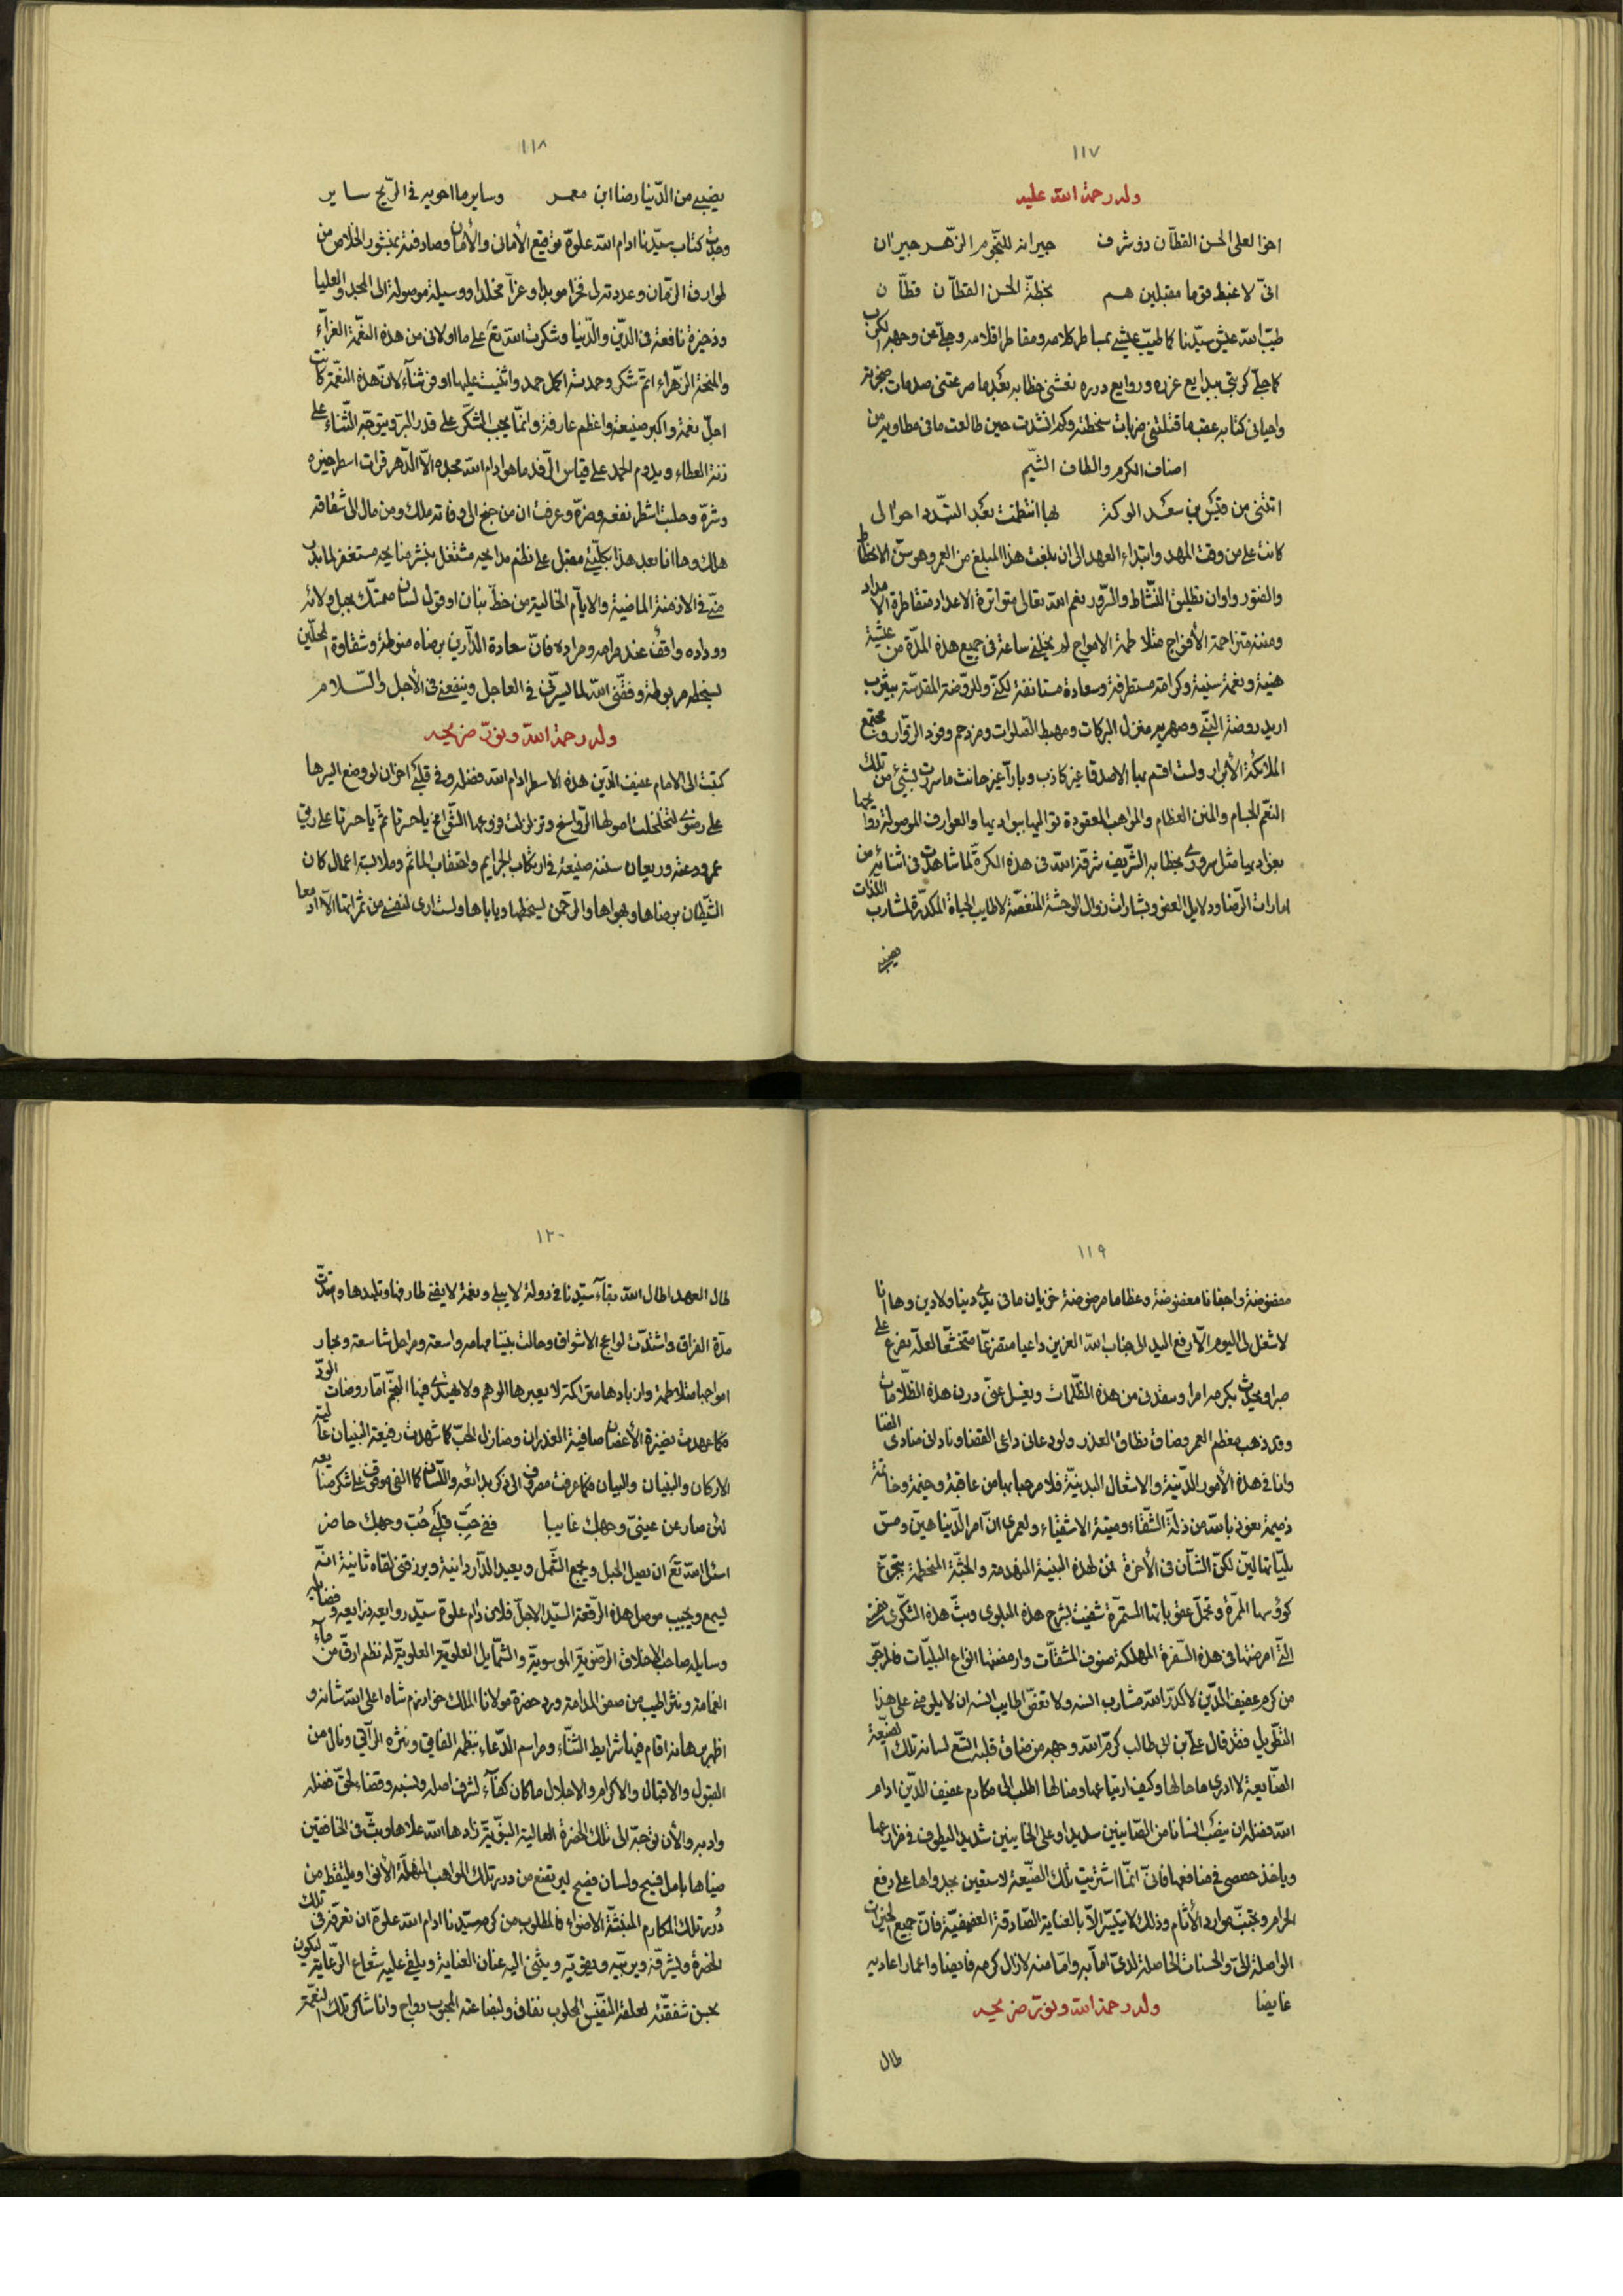 ١١٧
وله رحمة الله عليه
اخو العلى الحسن القطّان ذو شرف جيرانه للنّجوم الزّهر جيران
انّى لاغبط قوما مقبلين هم بخطّة الحسن القطّان قطّان
طيّب الله عيش سيّدنا كما طيّب عيشى بمباطر كلامه ومقاطر اقلامه وجلّى عن وجهه الكرب
كما جلّى كربتى ببدايع غرره وروايع درره نعشنى خطابه بعد ما صرعتنى صدمات
واحيانى كتابه عقب ما قتلتنى ضربات سخطته ولمّا انشدت حين طالعت ما فى مطاويه من
اصناف الكرم والطاف الشّيم
اتتنى من قيس بن سعد الوكة بها انتظمت بعد التبدد احوالى
كانت على من وقت المهد وابتداء العهد الى ان بلغت هذا المبلغ من العمر وهو سنّ الانحطاط
والفتور واوان تطليق النّشاط والسّرور نعم الله تعالى متواترة الاعداد متقاطرة الامداد
ومننه متزاحمة الأفواج متلاطمة الامواج لم يخلنى ساعة فى جميع هذه المدّة من عيشة
هنيّة ونعمة سنيّة وكرامة مستطرفة وسعادة مستانفة لكنّى وللرّوضة المقدّسة بيثرب
اريد روضة النّبى وصهريه منزل البركات ومهبط الصّلوات ومزدحم وفود الزّوّار ومجتمع
الملائكة الأبرار ولست اقسم بها الا صدقا غير كاذب وبارّا غير حانث ما سررت بشىء من تلك
النّعم الجسام والمنن العظام والمواهب المعقودة تواليها ببواديها والعوارف الموصولة توابعها
بعزاديها مثل سرورى بخطابه الشّريف شرّفه الله فى هذه الكرّة لما شاهدت فى اثنائه من
امارات الرّضا ودلايل العفو وبشارات زوال الوحشة المنغّصة لاطايب الحياة المكدّرة لمشارب اللذّات
١١٨
نصيبى من الدّنيا رضا ابن معمر وساير ما احويه فى الرّيح ساير
وجدت كتاب سيّدنا ادام الله علوّه توقيع الأمانى والأمان وصادفته بمنشور الخلاص من
طوارق الزّمان وعددته لى فخرا مويدا وعزّا مخلدا ووسيلة موصولة الى المجد والعليا
وذخيرة نافعة فى الدّين والدّنيا وشكرت الله تع على ما اولانى من هذه النّعمة الغرّاء
والمنحة الزّهراء اتمّ شكر وحمدته اكمل حمد واثنيت عليها اوفر ثناء لانّ هذه النعمة كانت
اجلّ نعمة واكبر صنيعة واعظم عارفة وانّما يجب الشّكر على قدر البرّ ويتوجّه الثّناء على
زنة العطاء ويلزم الحمد على قياس الرّفد ما هو ادام الله مجده الّا الدّهر قرات اسطر خيره
وشرّه وحلبت اشطر نفعه وضرّه وعرفت ان من جنح الى وفاقه ملك ومن مال الى شقاقه
هلك وها انا بعد هذا بكلّيتى مقبل على نظم مدايحه مشتغل بنشر منايحه مستغفر لما بدر
منّى فى الازمنة الماضية والايّام الخالية من خطّ بنان او قول لسان متمسّك بحبل ولائه
ووداده واقف عند مرامه ومراده فانّ سعادة الدّارين برضاه منوطة وشقاوة المحلّين
بسخطه مربوطة وفقّنى الله لما يسرّنى فى العاجل وينفعنى فى الأجل والسّلام
وله رحمة الله ونوّر ضريحه
كتبت الى الامام عفيف الدّين هذه الاسطر ادام الله فضله وفى قلبى احزان لو وضع اليسرها
على رضوى لتخلخلت اصولها الرّواسخ وتزلزلت فروعها الشّوامخ يا حسرتا ثمّ يا حسرتا على رقى
عمر ودعته وريعان سننه ضيعته فى ارتكاب الجرايم واحتقاب الماثم وملابسة اعمال كان
الشّيطان يرضاها ويهواها والرّحمن يسخطها وياباها ولست ارى لنفسى من ثمراتها الّا ادمعا
١١٩
مفضوضة واجفانا مغضوضة وعظاما مرضوضة خزيان ما فى يدى دنيا ولا دين وها انا
لا شغل لى اليوم الّا رفع اليد الى جناب الله العزيز داعيا متضرّعا متخشّعا لعلّه يفرغ على
صبرا ويحدث بكرمه امرا وينقذنى من هذه الظّلمات ويغسل عنّى درن هذه الظّلامات
وقد ذهب معظم العمر وضاق نطاق العذر ولو دعانى داعى القضا ونادانى منادى الفنا
وانا فى هذه الأمور الدّنيّة والاشغال البدنيّة فلا مرحبا بها من عاقبة وخيمة وخاتمة
ذميمة نعوذ بالله من ذلّة الشّقاء وميتة الاشقياء ولعمرى انّ امر الدّنيا هيّن ومسّ
بليّاتها ليّن لكنّ الشّان فى الأخرة فمن لهذه البنية المنهدمة والجثّة المنحطمة بتجرّع
كؤوسها المرّة وتحمّل عقوباتها المستمرّة شفيت بشرح هذه البلوى وبثّ هذه الشّكوى
الّتى امرضتها فى هذه السّفرة المهلكة صنوف المشقّات وارمضتها انواع البليّات فالمرجوّ
من كرم عفيف الدّين لا كدّر الله مشارب انسه ولا نغصّ اطايب انسه ان لا يلومنى على هذا
التّطويل فقد قال علىّ بن ابى طالب كرّم الله وجهه من ضاق قلبه اتّسع لسانه تلك الصّنيعة
الضّايعة لا ادرى ما حالها وكيف ارتياعها ومنالها اطلب الى مكارم عفيف الدّين ادام
الله فضله ان ينصب انسانا من الصّاينين سديدا وعلى الخاينين شديدا ليطوف فى مزارعها
وياخذ حصصى فى منافعها فانّى انّما اشتريت تلك الضّيعة لاستعين بجدواها على دفع
الحرام وتجنّب موارد الأثام وذلك لا يتيسّر الّا بالعناية الصّادقة العفيفيّة فانّ جميع الخيرات
الواصلة الىّ والحسنات الحاصلة لدىّ امّا به وامّا منه لا زال كرمه فايضا واعمار اعاديه
غايضا وله رحمة الله ونوّر ضريحه
طال
١٢٠
طال العهد اطال الله بقاء سيّدنا فى دولة لا يبلى ونعمة لا يفنى طارفها وتليدها وامتدّت
مدّة الفراق واشتدّت لواعج الاشواق وحالت بيننا مهامه واسعة ومراحل شاسعة وبحار
امواجها متلاطمة وازبادها متراكمة لا يعبرها الوهم ولا يهتدى فيها النّجم امّا روضات الودّ
فكما عهدت نضيرة الأغصان صافية الغدران ومنازل الحبّ كما شهدت رفيعة البنيان عالية
الاركان والبنيان والبيان فكما عرفت مصروف الى ذكر بدائعه واللّسان كما الفى موقوف على شكر صنايعه
لئن صار عن عينىّ وجهك غايبا ففى حبّ قلبى حُبّ وجهك حاضر
اسئل الله تع ان يصل الحبل ويجمع الشّمل ويعيد الدّار دانية ويرزقنى لقاه ثانية انّه
يسمع ويجيب موصل هذه الرّقعة السّيّد الاجلّ فلان دام علوّه سيّد روايعه ذرايعه وفضايله
وسايله صاحب الاخلاق الرّضويّة الموسويّة والشّمايل العلويّة العلويّة له نظم ارقّ من ماء
الغمامة ونثر اطيب من صفو المدامة ورد حضرة مولانا الملك خوارزم شاه اعلى الله شانه و
اظهر برهانه اقام فيها شرايط الثّناء ومراسم الدّعاء بنظمه الفايق ونثره الرّائق ونال من
القبول والاقبال والاكرام والاجلال ما كان كفاء لشرف اصله ونسبه وقضاء لحقّ فضله
وادبه والأن توجّه الى تلك الحضرة العالية النّبويّة زادها الله علاها وبثّ فى الخافقين
ضياها بامل فسيح ولسان فصيح ليرتضع من درر تلك المواهب المنهلّة الأنواء ويلتقط من
دُرر تلك المكارم المنبثّة الاضواء فالمطلوب من كرم سيّدنا ادام الله علوّه ان يعرّفه فى تلك
الحضرة ويشرّفه ويربّيه ويقوّيه ويثنى اليه عنان العناية ويلقى عليه شعاع الرّعاية ليكون
بحسن شفقته لعلقه النّفيس المجلوب نفاق ولبضاعته المحبوب رواج وانا شاكر تلك النّعمة